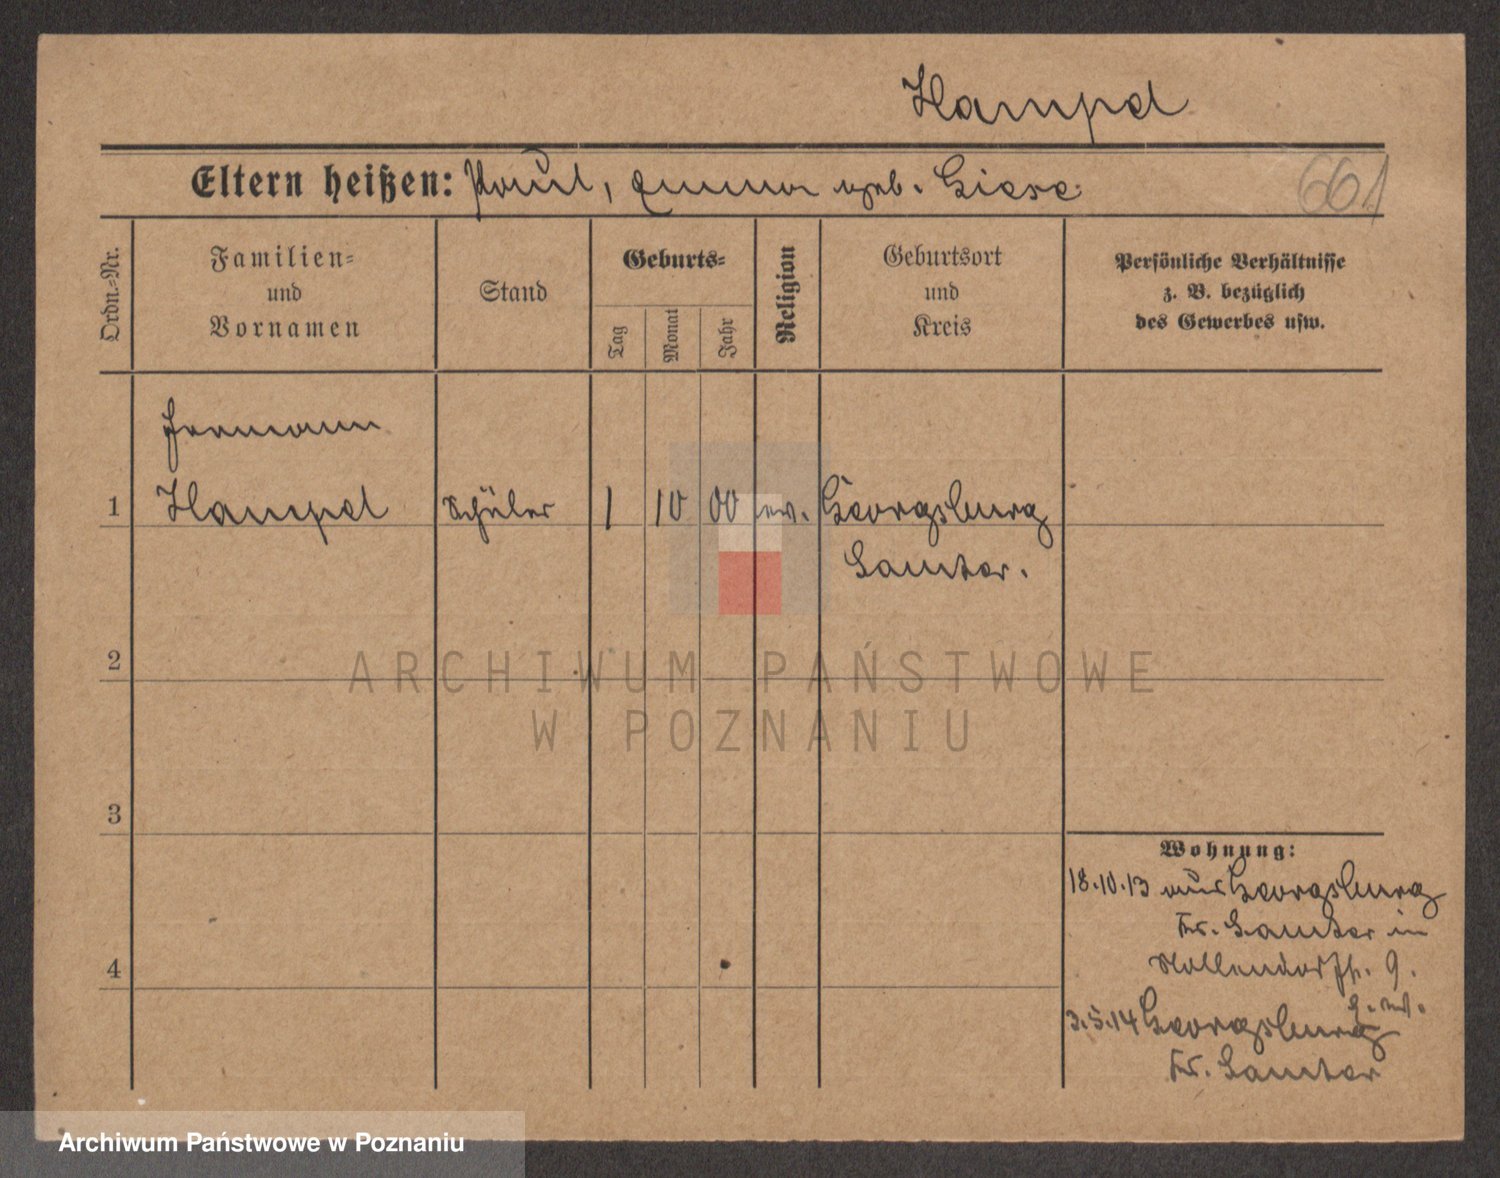 Hampel
Eltern heißen: Paul, Emma geb. Giese
661
Ordn.-Nr.
Familien-
und
Vornamen
Stand
Geburts-
Tag
Monat
Jahr
Religion
Geburtsort
und
Kreis
Persönliche Verhältnisse
z. B. bezüglich
des Gewerbes usw.
Hermann
1 Hampel Schüler 1 10 00 ev. Georgsburg
Samter.
2
3
4
Wohnung:
18.10.13 aus Georgsburg
Kr. Samter in
Nollendorfstr. 9.
3.5.14 Georgsburg
Kr. Samter
ARCHIWUM PAŃSTWOWE
W POZNANIU
Archiwum Państwowe w Poznaniu